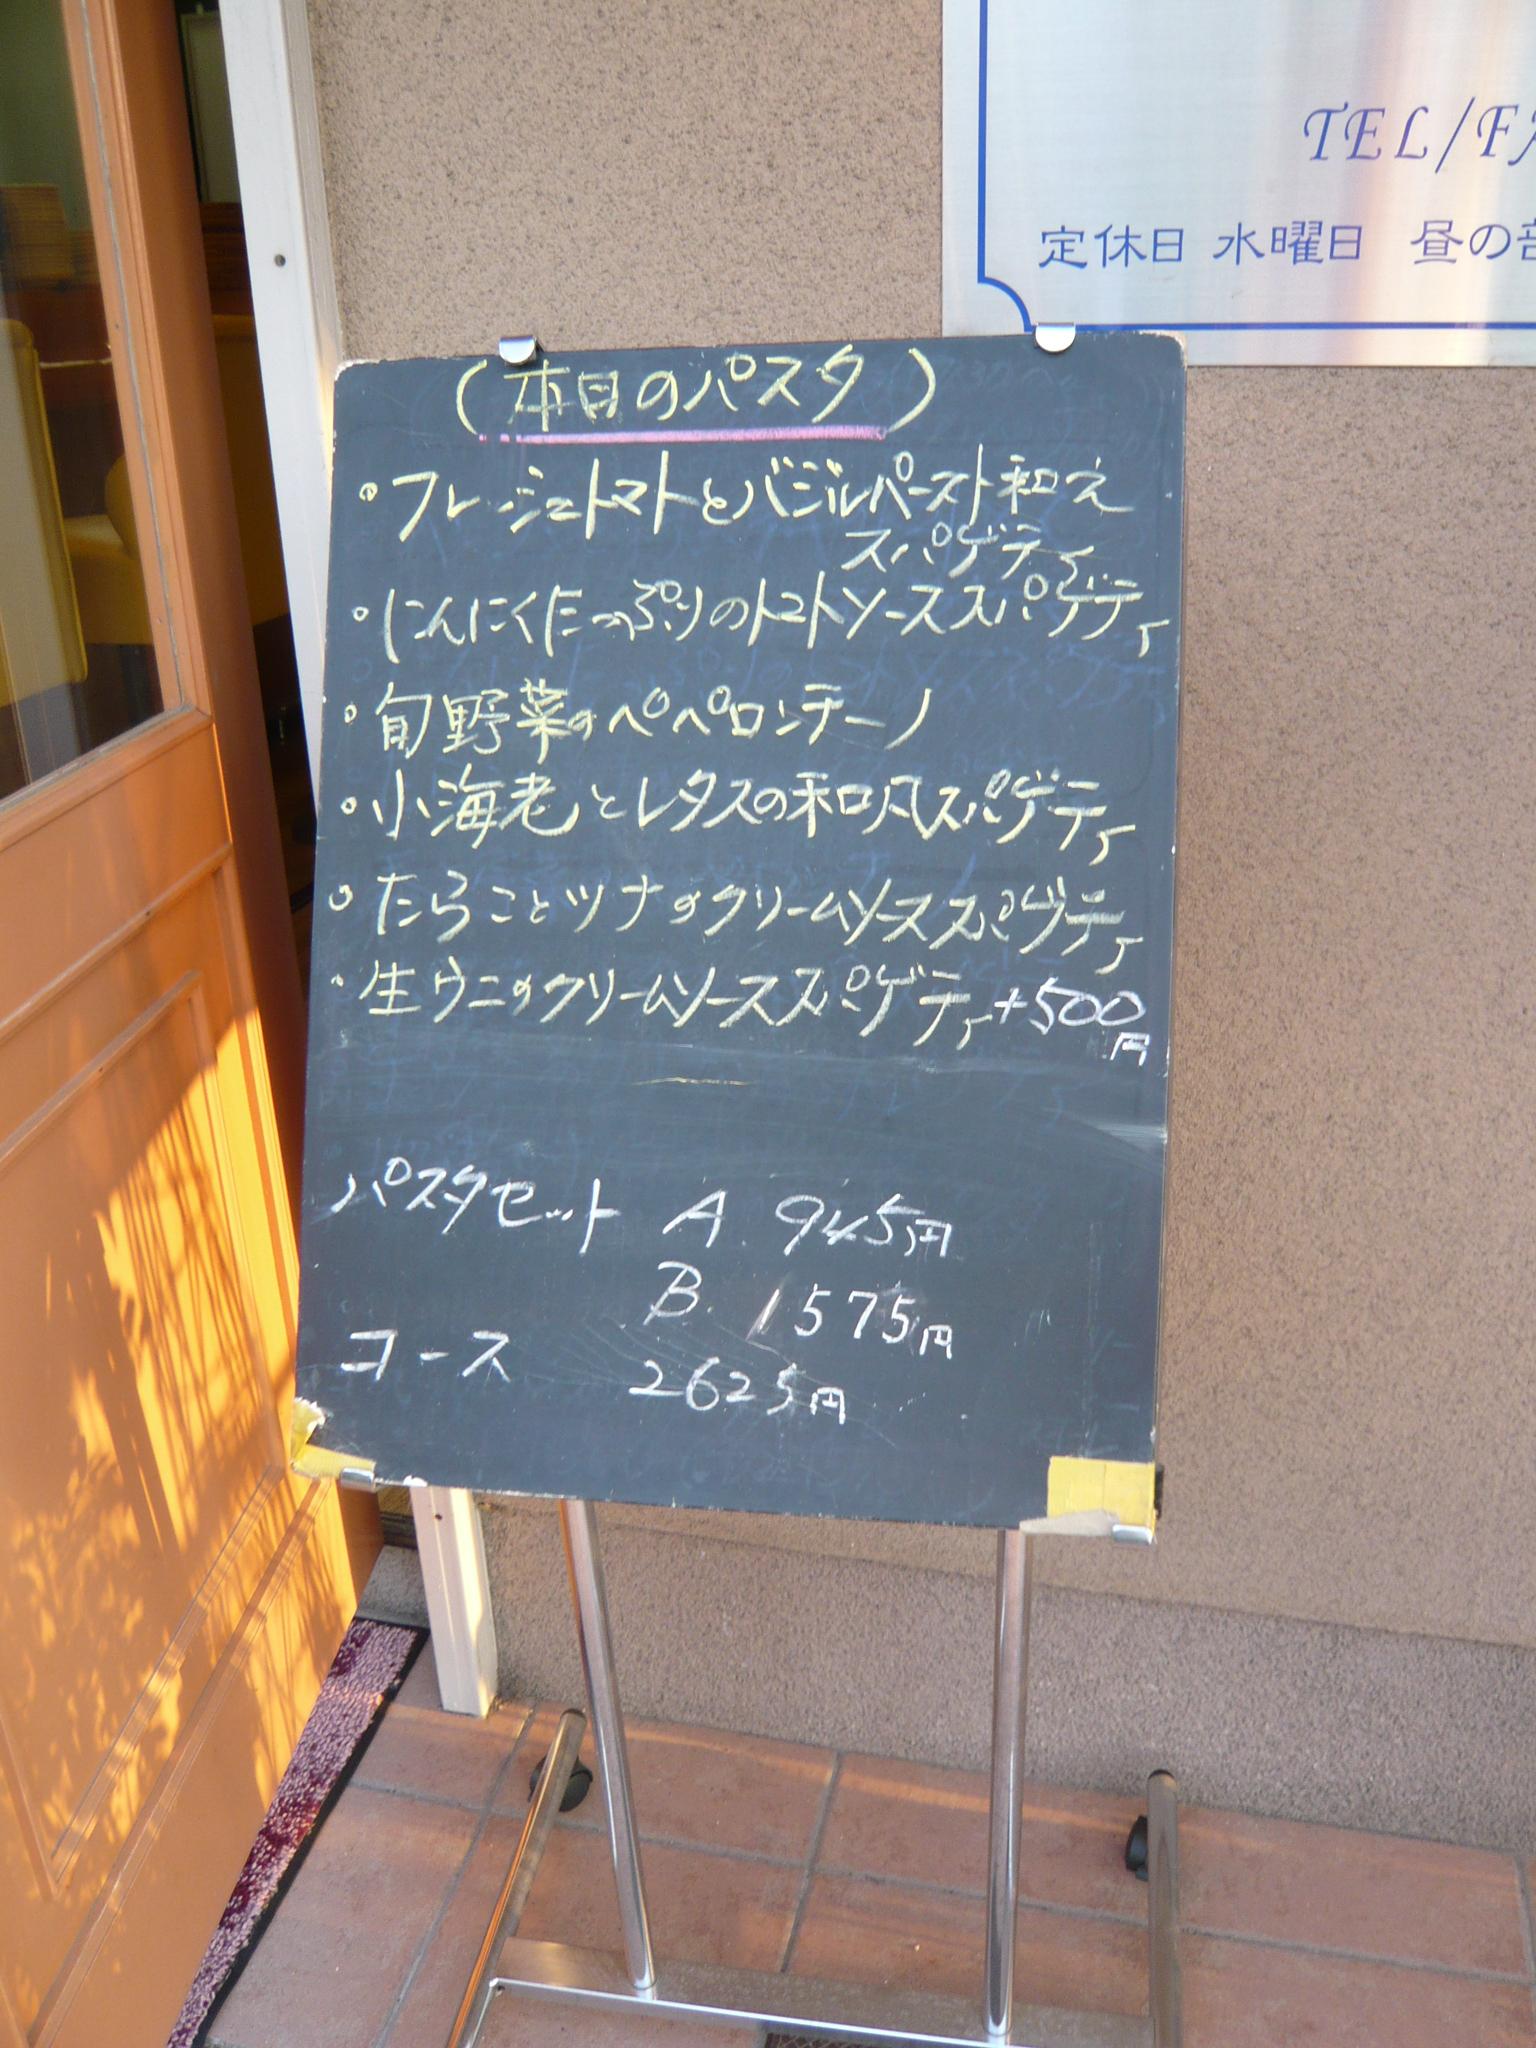 TEL/FA
定休日 水曜日 昼の部
(本日のパスタ)
・フレッシュトマトとバジルペースト和え
スパゲティ
・にんにくたっぷりのトマトソーススパゲティ
・旬野菜のペペロンチーノ
・小海老とレタスの和風スパゲティ
・たらことツナのクリームソーススパゲティ
・生ウニのクリームソーススパゲティ+500
円
パスタセット A. 945円
B. 1575円
コース 2625円